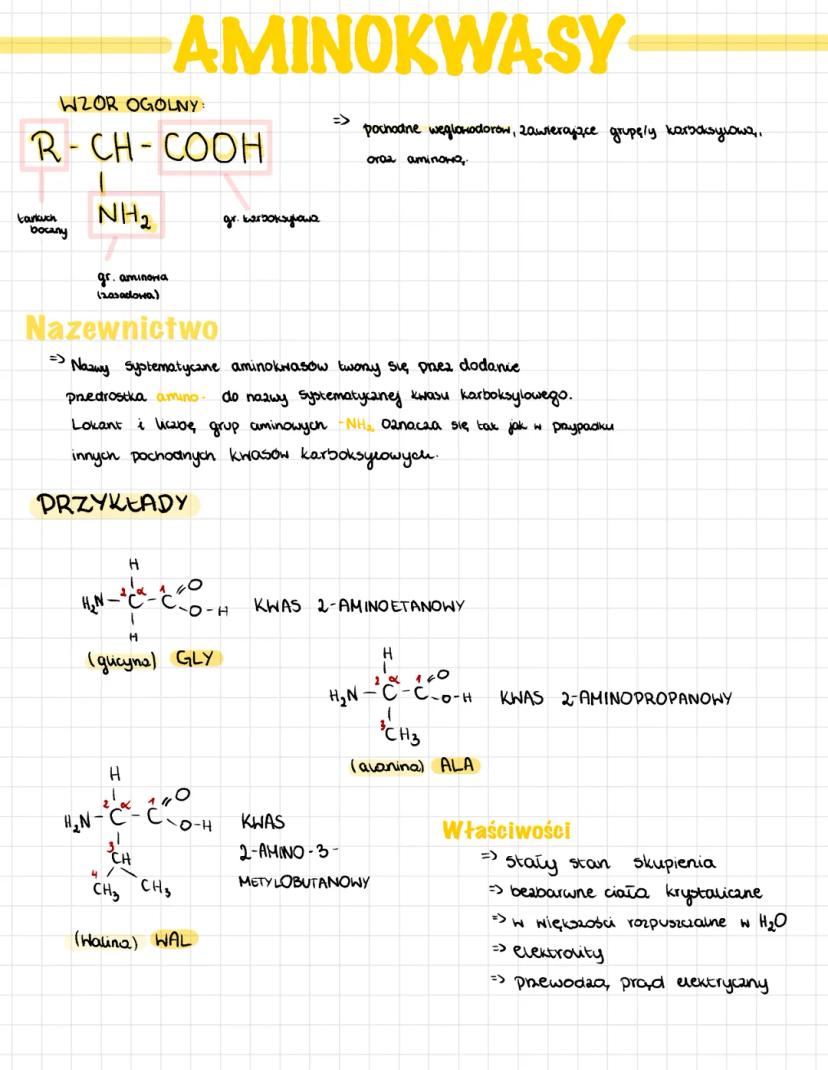 AMINOKWASY
WZÓR OGÓLNY:
R - CH - COOH
NH₂
łańcuch
boczny
gr. karboksylowa
gr. aminowa
(zasadowa)
=> pochodne węglowodorów, zawierające grupę/y karboksylową,
oraz aminową.
Nazewnictwo
=> Nazwy systematyczne aminokwasów tworzy się przez dodanie
przedrostka amino- do nazwy systematycznej kwasu karboksylowego.
Lokant i liczbę grup aminowych -NH₂ oznacza się tak jak w przypadku
innych pochodnych kwasów karboksylowych.
PRZYKŁADY
H
2 α 1 O
H₂N - C - C - O - H KWAS 2-AMINOETANOWY
H
(glicyna) GLY
H
2 α 1 O
H₂N - C - C - O - H KWAS 2-AMINOPROPANOWY
3 CH₃
(alanina) ALA
H
2 α 1 O
H₂N - C - C - O - H
3 CH
4 CH₃ CH₃
KWAS
2-AMINO-3-
METYLOBUTANOWY
(Walina) WAL
Właściwości
=> stały stan skupienia
=> bezbarwne ciała krystaliczne
=> w większości rozpuszczalne w H₂O
=> elektrolity
=> przewodzą prąd elektryczny